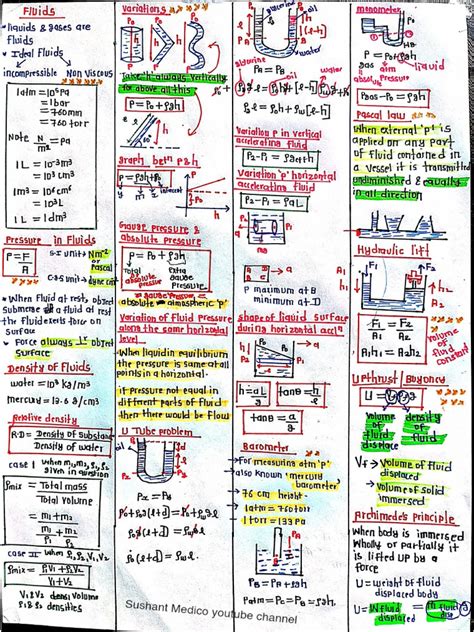 Fluids
liquids & gases are
Fluids
Ideal Fluids
incompressible Non Viscous
1atm = 10⁵ Pa
= 1bar
= 760mm
= 760 torr
Note N/m² = Pa
1L = 10⁻³m³
= 10³cm³
1m³ = 10⁶cm³
= 10³L
1L = 1dm³
Pressure in Fluids
P = F/A
S.I unit → Nm⁻²
or Pascal
C.G.S unit → dyne cm⁻²
When Fluid at rest, object
submerge in a Fluid at rest
the fluid exerts force on
surface
Force always ⊥ object
surface
Density of Fluids
water = 10³ kg/m³
mercury = 13.6 g/cm³
Relative density
R.D = Density of Substance / Density of water
case I when m₁, m₂, ρ₁, ρ₂
given in question
ρmix = Total mass / Total volume
= m₁ + m₂ / m₁/ρ₁ + m₂/ρ₂
case II when ρ₁, ρ₂, V₁, V₂
ρmix = ρ₁V₁ + ρ₂V₂ / V₁ + V₂
V₁ & V₂ volume
ρ₁ & ρ₂ densities
variations
P₀ P₀ P₀
h h h
Take 'h' always vertically
for above all this
P = P₀ + ρgh
graph betn P & h
P = ρgh + P₀
y m x intercept
Gauge pressure &
absolute pressure
P = P₀ + ρgh
Total
absolute
pressure
extra
gauge
Pressure
gauge pressure =
absolute - atmospheric 'P'
Variation of Fluid pressure
along the same horizontal
level
When liquid in equilibrium
the pressure is same at all
points in a horizontal.
if pressure not equal in
different parts of fluid
then there would be flow
U Tube problem
Pₓ = P_B
P₀ + ρg(l+d) = P₀ + ρwgl
ρ(l+d) = ρwl
ρ(l+d) = ρwl
glycerine
water
P_A = P_B
Variation P in vertical
accelerating fluid
P₂ - P₁ = ρ(g+a)h
Variation 'P' horizontal
accelerating fluid
P₂ - P₁ = ρaL
P maximum at B
minimum at D
shape of liquid surface
during horizontal accln
h = aL/g
tanθ = h/L
tanθ = a/g
Barometer
For measuring atm 'P'
also known 'mercury
barometer'
76 cm height
1atm = 760torr
1 torr = 133 Pa
P_B = P_A + ρgh
Patm = P_C = P_B = ρgh
manometer
P = P₀ + ρgh
gas atm liquid
absolute pressure
Pgas - P₀ = ρgh
Pascal law
When external 'p' is
applied on any part
of fluid contained in
a vessel it is transmitted
undiminished & equally
in all direction
Hydraulic lift
F₁ F₂
A₁ A₂
F₁/A₁ = F₂/A₂
A₁h₁ = A₂h₂
volume of
fluid
constant
UPthrust/Buoyancy
U = Vρg
volume
of
fluid
displace
density
of
fluid
V_F → Volume of fluid
displaced
→ volume of solid
immersed
Archimede's principle
When body is immersed
Wholly or partially it
is lifted up by a
force
U = weight of fluid
displaced body
Sushant Medico youtube channel